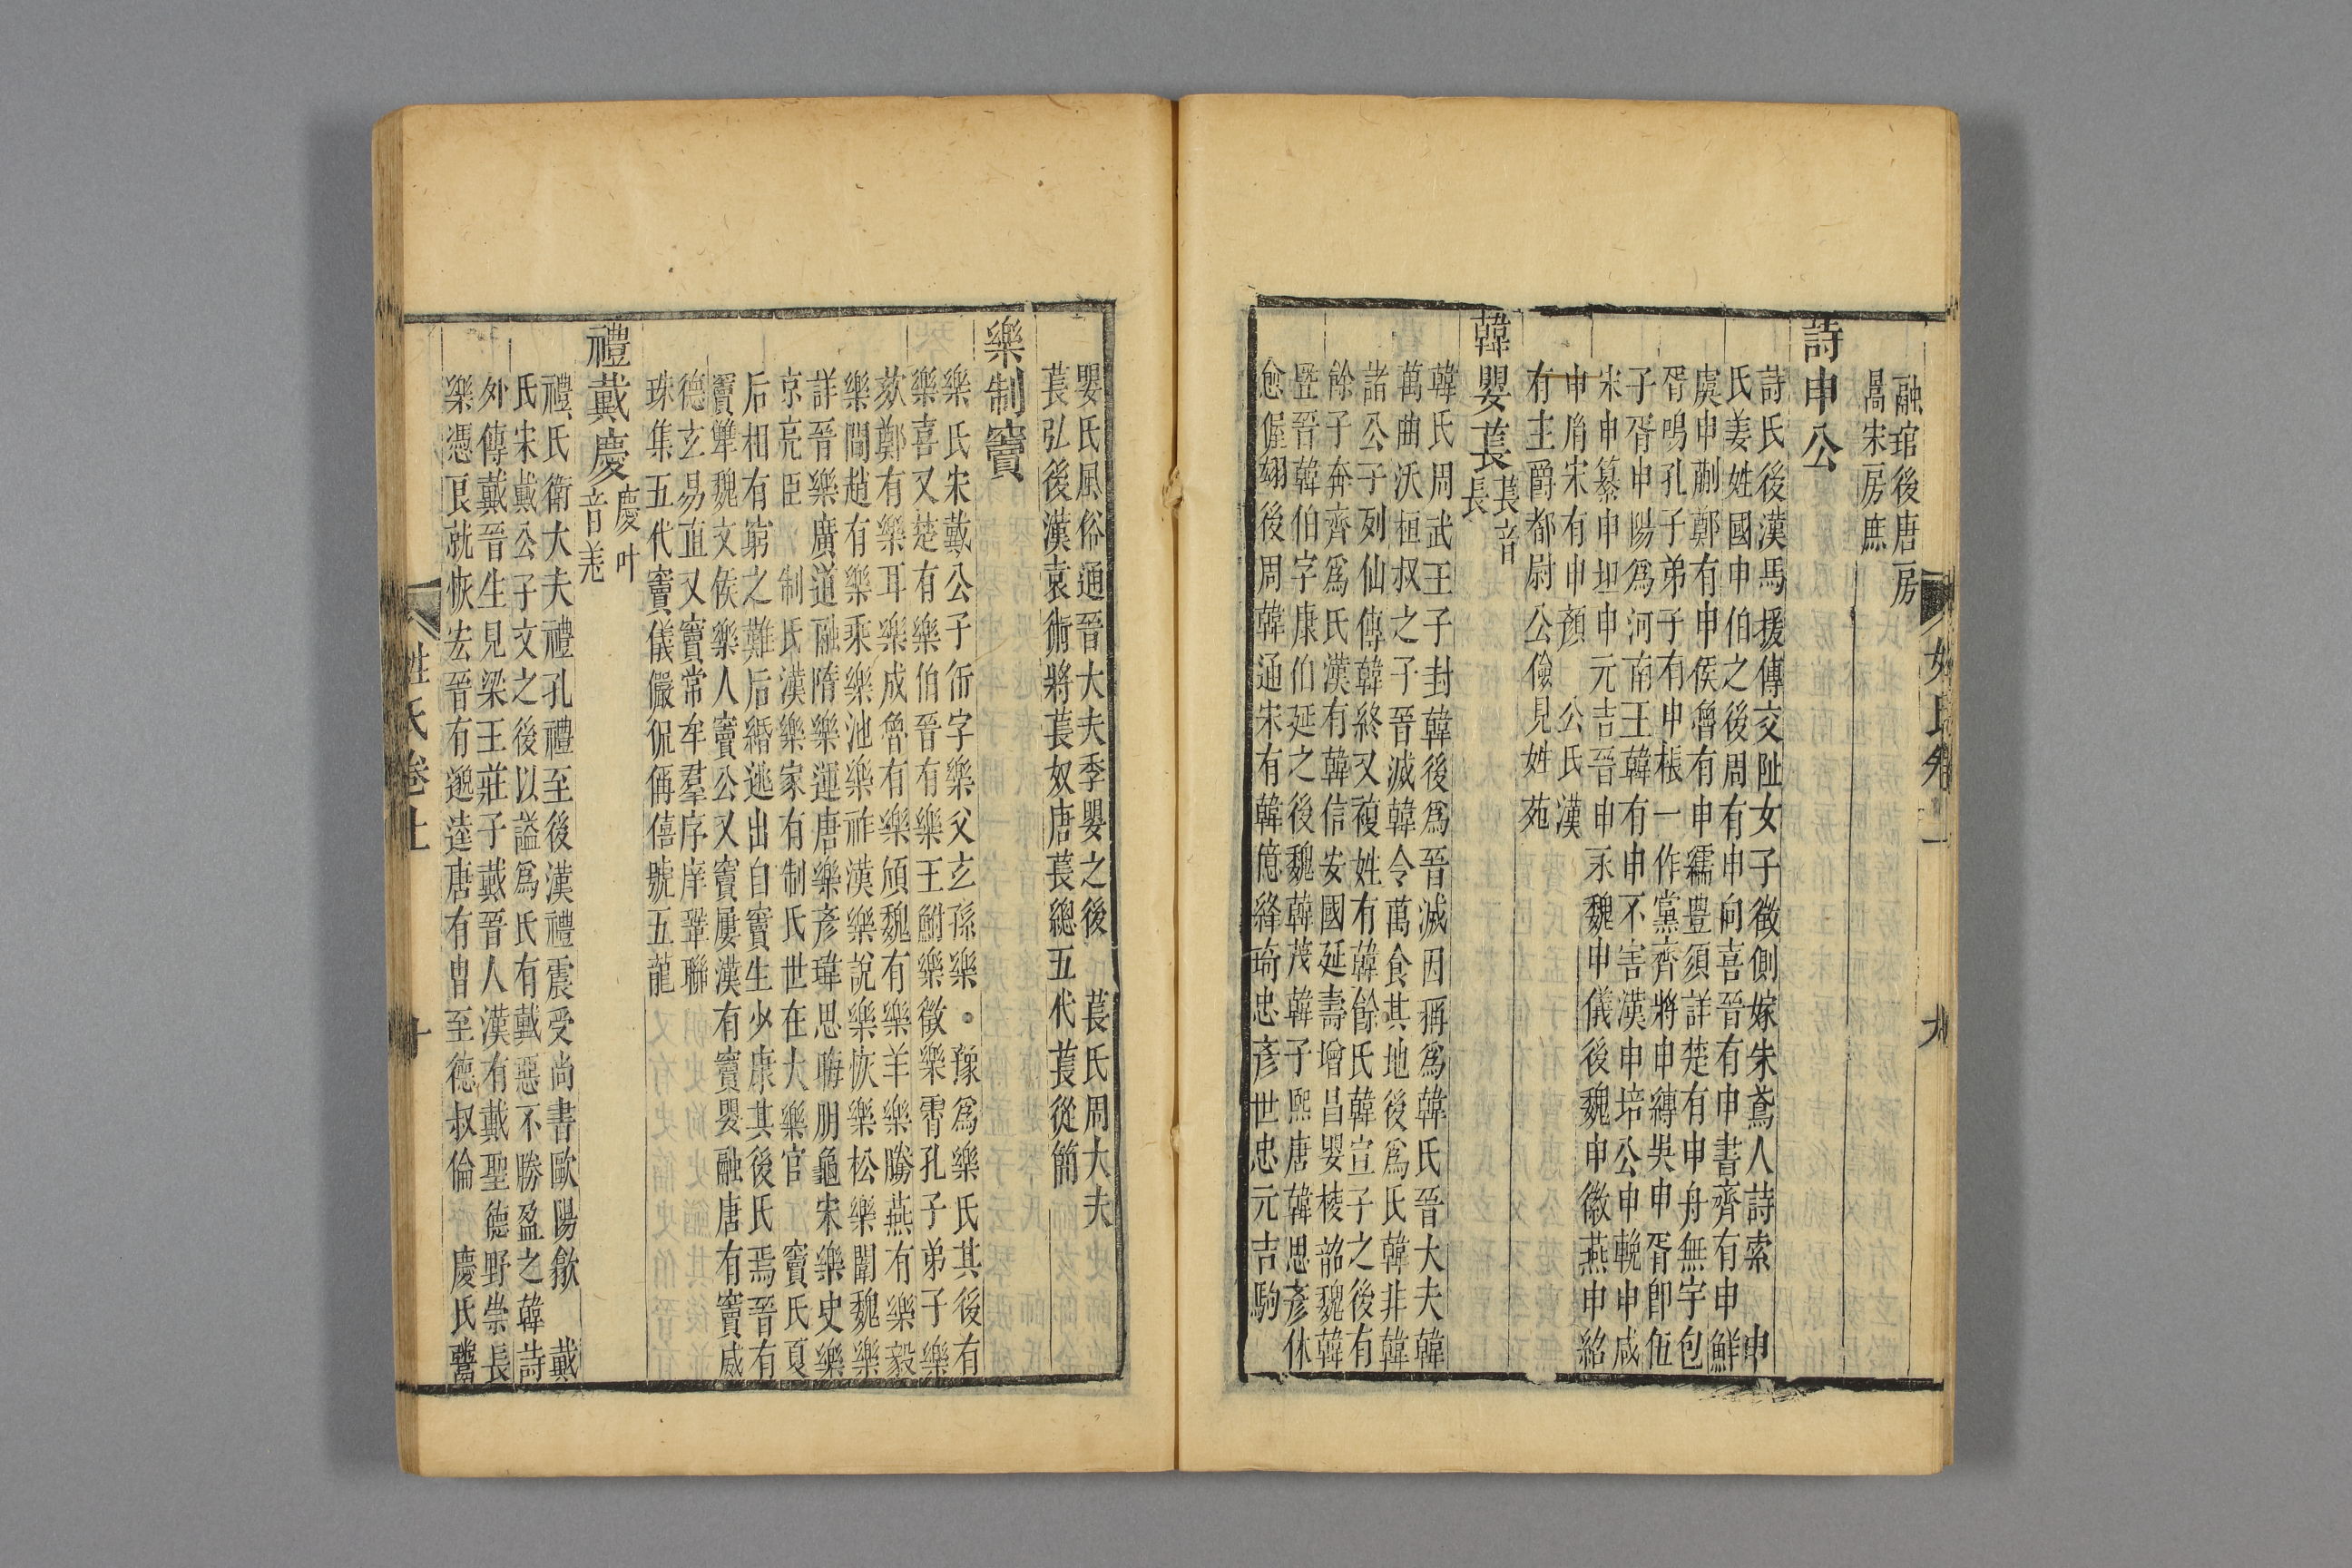 融琯後唐房
暠宋房庶
詩申公
詩氏後漢馬援傳交阯女子徵側嫁朱鳶人詩索 申
氏姜姓國申伯之後周有申向喜晉有申書齊有申鮮
虞申蒯鄭有申侯魯有申繻豊須詳楚有申舟無宇包
胥鳴孔子弟子有申棖一作黨齊將申縳吳申胥卽伍
子胥申陽爲河南王韓有申不害漢申培公申輓申咸
宋申纂申坦申元吉晉申永魏申儀後魏申徽燕申紹
申屑宋有申顏 公氏漢
有主爵都尉公儉見姓苑
韓嬰萇萇音長
韓氏周武王子封韓後爲晉滅因稱爲韓氏晉大夫韓
萬曲沃桓叔之子晉滅韓令萬食其地後爲氏韓非韓
諸公子列仙傳韓終又複姓有韓餘氏韓宣子之後有
餘子奔齊爲氏漢有韓信安國延壽增昌嬰棱韶魏韓
曁晉韓伯字康伯延之後魏韓茂韓子熙唐韓思彥休
愈偓翃後周韓通宋有韓億絳琦忠彥世忠元吉駒
嬰氏風俗通晉大夫季嬰之後 萇氏周大夫
萇弘後漢袁術將萇奴唐萇總五代萇從簡
樂制竇
樂氏宋戴公子衎字樂父玄孫樂豫爲樂氏其後有
樂喜又楚有樂伯晉有樂王鮒樂徵樂霄孔子弟子樂
欬鄭有樂耳樂成魯有樂頎魏有樂羊樂勝燕有樂毅
樂閒趙有樂乘樂池樂祚漢樂說樂恢樂松樂闈魏樂
詳晉樂廣道融隋樂運唐樂彥瑋思晦朋龜宋樂史樂
京亮臣 制氏漢樂家有制氏世在大樂官 竇氏夏
后相有窮之難后緡逃出自竇生少康其後氏焉晉有
竇犨魏文侯樂人竇公又竇屢漢有竇嬰融唐有竇威
德玄易直又竇常牟羣序庠鞏聯
珠集五代竇儀儼侃偁僖號五龍
禮戴慶慶叶音羌
禮氏衛大夫禮孔禮至後漢禮震受尚書歐陽歙 戴
氏宋戴公子文之後以謚爲氏有戴惡不勝盈之韓詩
外傳戴晉生見梁王莊子戴晉人漢有戴聖德野崇長
樂憑良就恢宏晉有邈逵唐有冑至德叔倫 慶氏
姓氏卷上 十